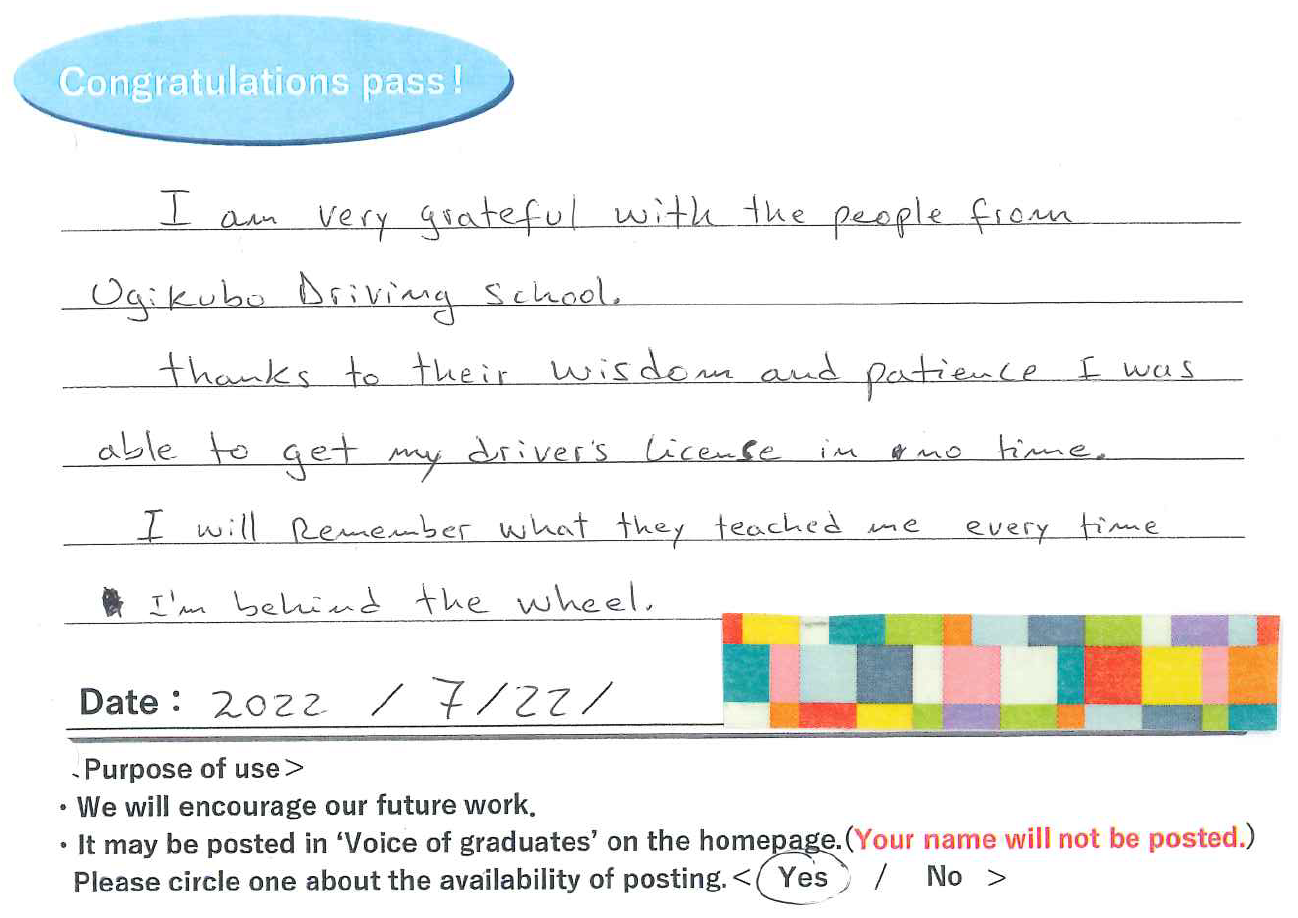 Congratulations pass!
I am very grateful with the people from
Ogikubo Driving School.
thanks to their wisdom and patience I was
able to get my driver's license in no time.
I will Remember what they teached me every time
I'm behind the wheel.
Date : 2022 / 7/22/
Purpose of use>
・We will encourage our future work.
・It may be posted in ‘Voice of graduates’ on the homepage.(Your name will not be posted.)
Please circle one about the availability of posting.< Yes / No >